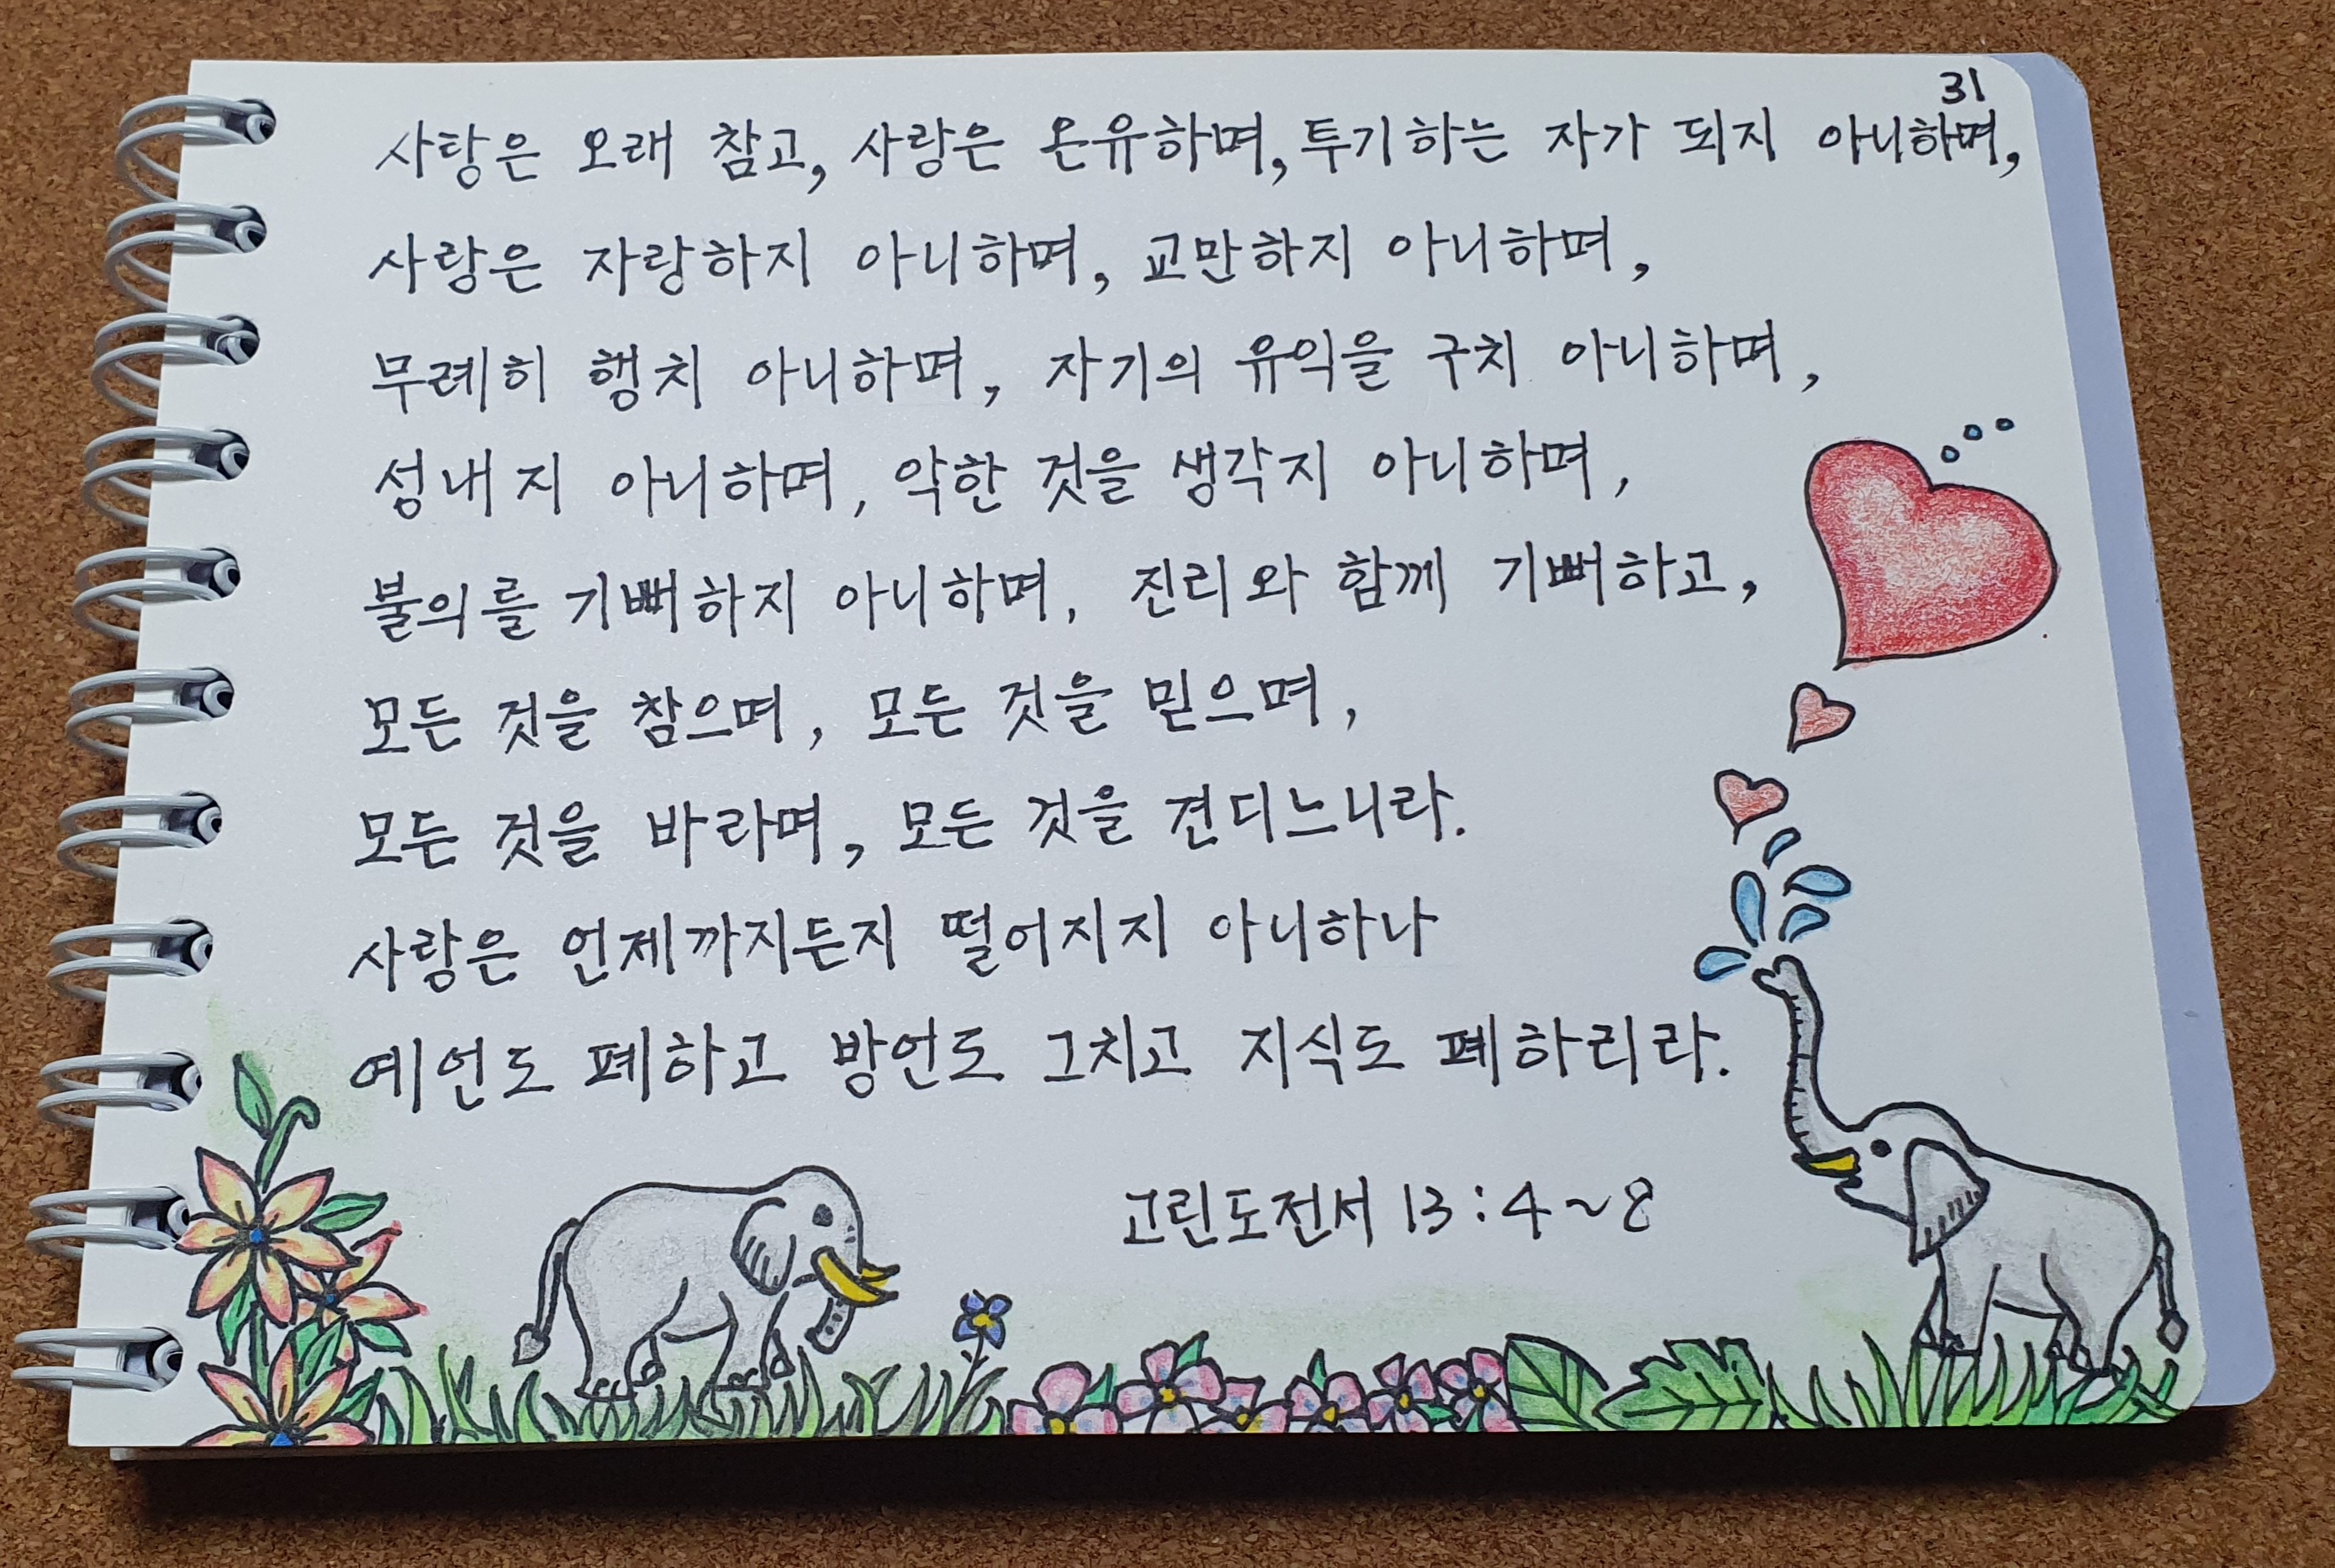 31
사랑은 오래 참고, 사랑은 온유하며, 투기하는 자가 되지 아니하며,
사랑은 자랑하지 아니하며, 교만하지 아니하며,
무례히 행치 아니하며, 자기의 유익을 구치 아니하며,
성내지 아니하며, 악한 것을 생각지 아니하며,
불의를 기뻐하지 아니하며, 진리와 함께 기뻐하고,
모든 것을 참으며, 모든 것을 믿으며,
모든 것을 바라며, 모든 것을 견디느니라.
사랑은 언제까지든지 떨어지지 아니하나
예언도 폐하고 방언도 그치고 지식도 폐하리라.
고린도전서 13:4~8